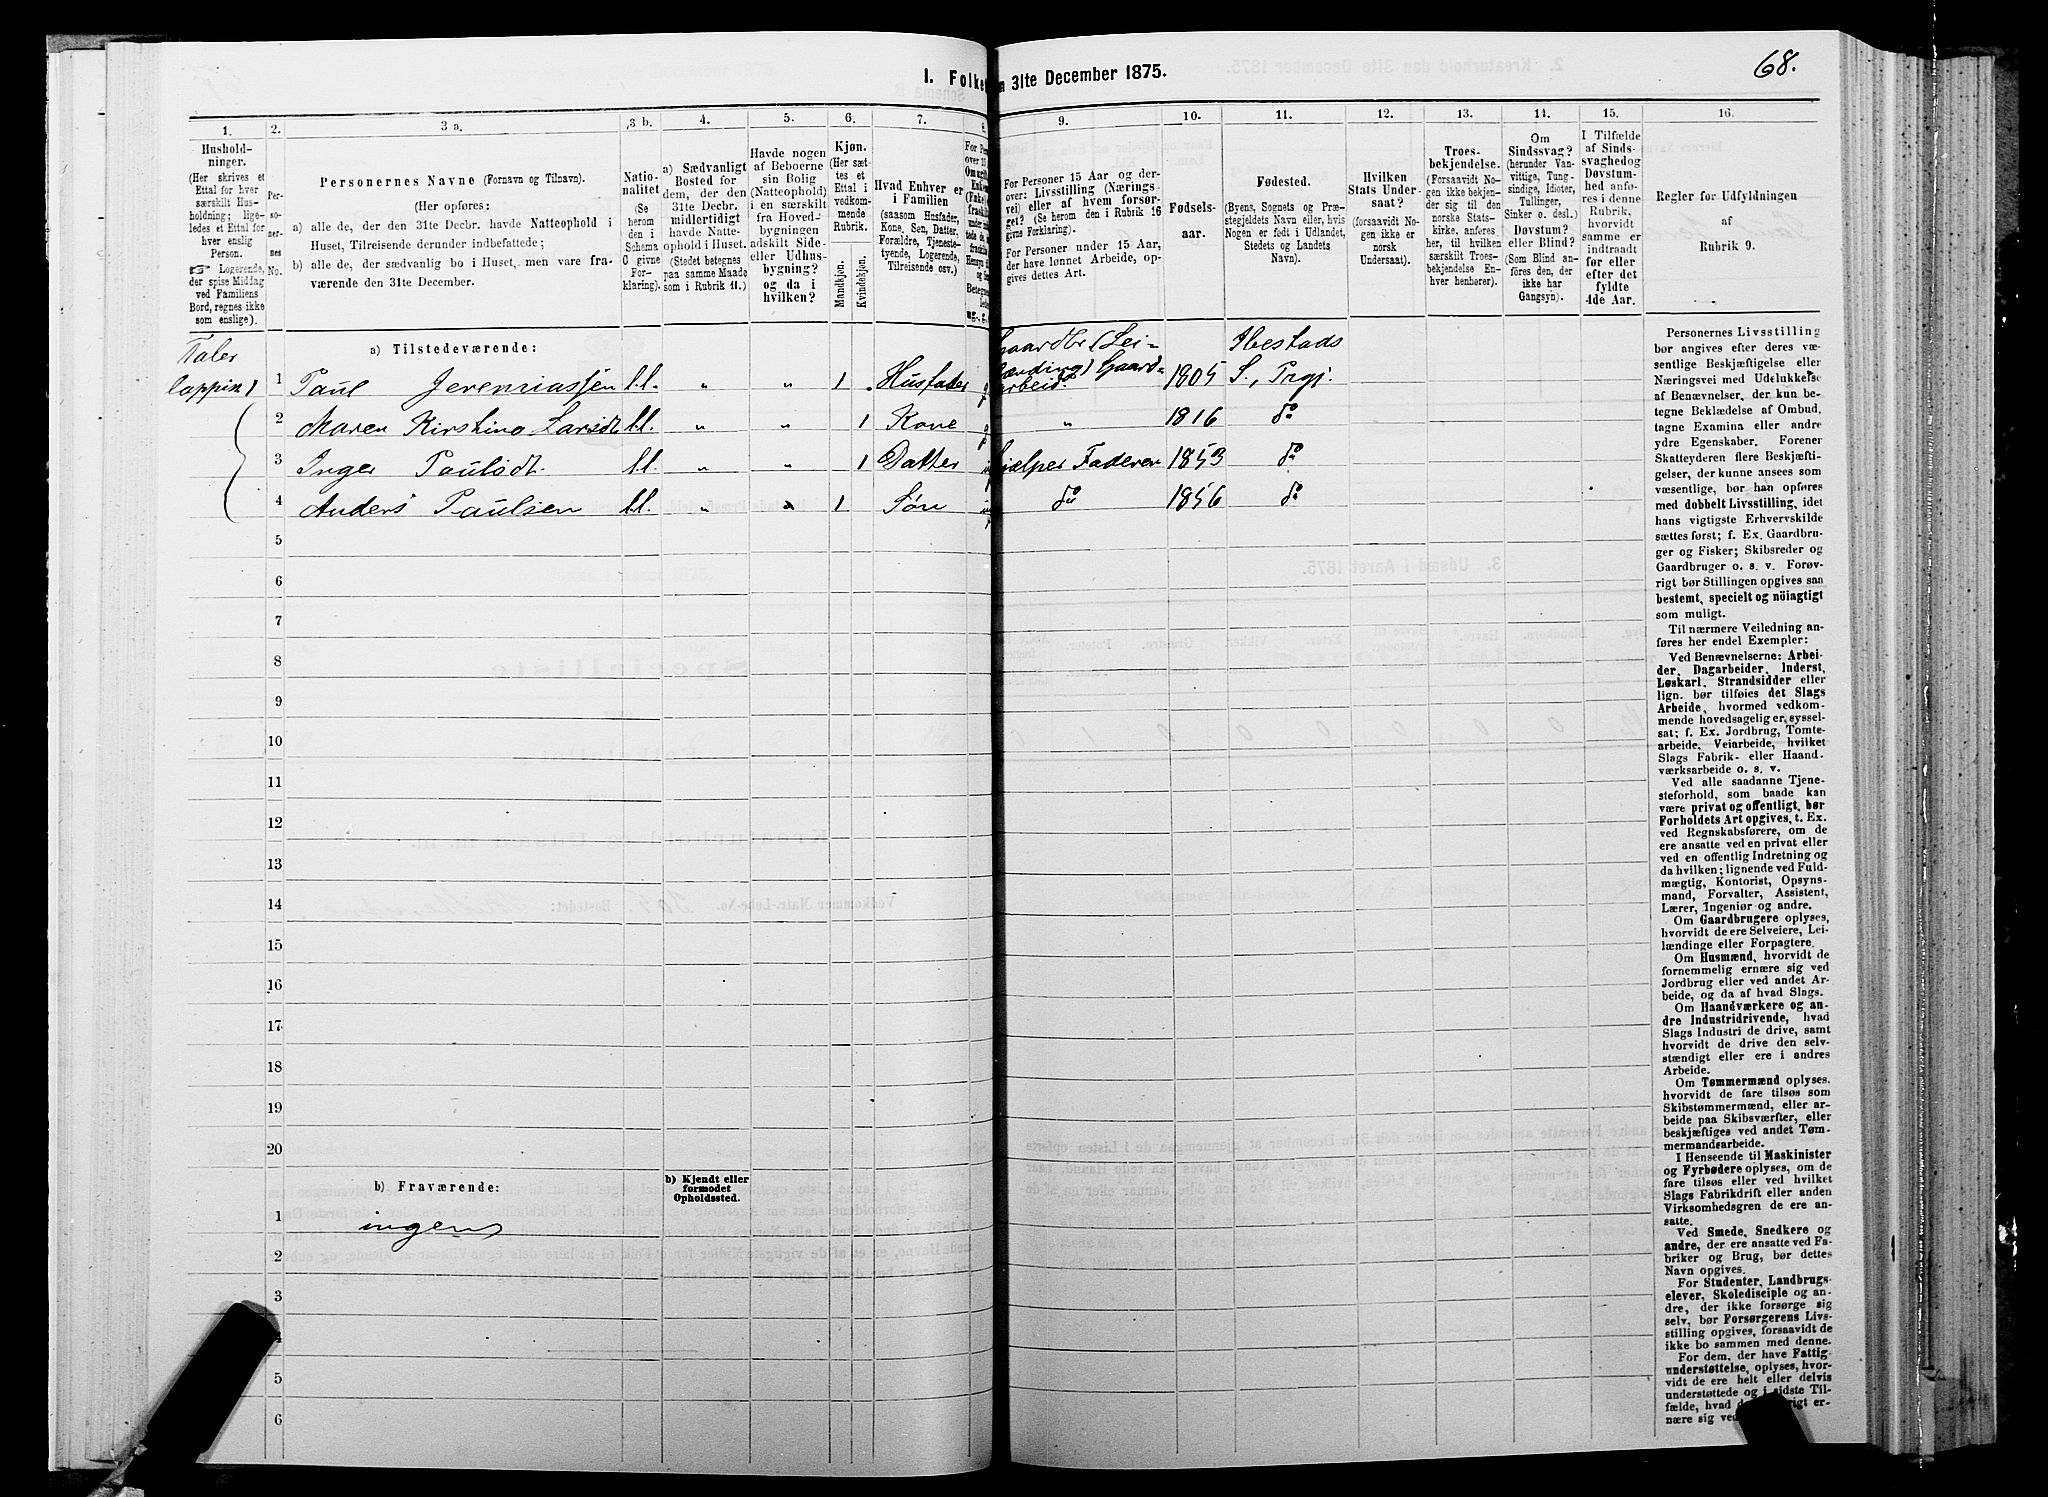 68.
I. Folke
n 31te December 1875.
1.
2.
3 a.
3 b.
4.
5.
6.
7.
8.
9.
10.
11.
12.
13.
14.
15.
16.
Hushold-
ninger.
(Her skrives et
Ettal for hver
særskilt Hus-
holdning; lige-
ledes et Ettal for
hver enslig
Person.
☞ Logerende,
der spise Middag
ved Familiens
Bord, regnes ikke
som enslige).
Per-
so-
ner-
nes
No.
Personernes Navne (Fornavn og Tilnavn).
(Her opføres:
a) alle de, der den 31te Decbr. havde Natteophold i
Huset, Tilreisende derunder indbefattede;
b) alle de, der sædvanlig bo i Huset, men vare fra-
værende den 31te December.
Natio-
nalitet
(Se
herom
den i
Schema
C givne
For-
klaring).
a) Sædvanligt
Bosted for
dem, der den
31te Decbr.
midlertidigt
havde Natte-
ophold i Huset.
(Stedet betegnes
paa samme Maade
som i Rubrik 11.)
Havde nogen
af Beboerne
sin Bolig
(Natteophold)
31te Decbr.
i en særskilt
fra Hoved-
bygningen
adskilt Side-
eller Udhus-
bygning?
og da i
hvilken?
Kjøn.
(Her sæt-
tes et
Ettal i
vedkom-
mende
Rubrik.
Mandkjøn.
Kvindekjøn.
Hvad Enhver er
i Familien
(saasom Husfader,
Kone, Søn, Datter,
Forældre, Tjeneste-
tyende, Logerende,
Tilreisende osv.)
For Personer 15 Aar og der-
over: Livsstilling (Nærings-
vei) eller af hvem forsør-
get? (Se herom den i Rubrik 16
givne Forklaring).
For Personer under 15 Aar,
der have lønnet Arbeide, op-
gives dettes Art.
Fødsels-
aar.
Fødested.
(Byens, Sognets og Præ-
stegjeldets Navn eller, hvis
Nogen er født i Udlandet,
Stedets og Landets
Navn).
Hvilken
Stats Under-
saat?
(forsaavidt No-
gen ikke er
norsk
Undersaat).
Troes-
bekjendelse.
(Forsaavidt No-
gen ikke bekjen-
der sig til den
norske Stats-
kirke, anføres
her, til hvilken
særskilt Troes-
bekjendelse En-
hver henhører).
Om
Sindssvag?
(herunder Van-
vittige, Tung-
sindige, Idioter,
Tullinger,
Sinker o. desl.)
Døvstum?
eller Blind?
(Som Blind an-
føres den, der
ikke har
Gangsyn).
I Tilfælde
af Sinds-
svaghed og
Døvstum-
hed anfø-
res i denne
Rubrik,
hvorvidt
samme er
indtraadt
før eller
efter det
fyldte
4de Aar.
Regler for Udfyldningen
af
Rubrik 9.
Taler
lappisk
a) Tilstedeværende:
1 Paul Jeremiassen l.l. " " 1 Husfader Gaardbr (Lei-
lænding) Gaard-
arbeid. 1805 Ibestads
S., Prgj.
2 Maren Kirstine Larsdt l.l. " " 1 Kone " 1816 do
3 Inger Paulsdt. l.l. " " 1 Datter hjelper Faderen 1853 do
4 Anders Paulsen l.l. " " 1 Søn do 1856 do
5
6
7
8
9
10
11
12
13
14
15
16
17
18
19
20
b) Fraværende:
b) Kjendt eller
formodet
Opholdssted.
1 ingen
2
3
4
5
6
Personernes Livsstilling
bør angives efter deres væ-
sentlige Beskjæftigelse eller
Næringsvei med Udelukkelse
af Benævnelser, der kun be-
tegne Beklædelse af Ombud,
tagne Examina eller andre
ydre Egenskaber. Forener
Skatteyderen flere Beskjæfti-
gelser, der kunne ansees som
væsentlige, bør han opføres
med dobbelt Livsstilling, idet
hans vigtigste Erhvervskilde
sættes først; f. Ex. Gaardbru-
ger og Fisker; Skibsreder og
Gaardbruger o. s. v. Forøv-
rigt bør Stillingen opgives saa
bestemt, specielt og nöiagtigt
som muligt.
Til nærmere Veiledning an-
føres her endel Exempler:
Ved Benævnelserne: Arbei-
der, Dagarbeider, Inderst,
Løskarl, Strandsidder eller
lign. bør tilføies det Slags
Arbeide, hvormed vedkom-
mende hovedsagelig er syssel-
sat; f. Ex. Jordbrug, Tomte-
arbeide, Veiarbeide, hvilket
Slags Fabrik- eller Haand-
værksarbeide o. s. v.
Ved alle saadanne Tjene-
steforhold, som baade kan
være privat og offentligt, bør
Forholdets Art opgives, t. Ex.
ved Regnskabsførere, om de
ere ansatte ved en privat eller
ved en offentlig Indretning og
da hvilken; lignende ved Fuld-
mægtig, Kontorist, Opsyns-
mand, Forvalter, Assistent,
Lærer, Ingeniør og andre.
Om Gaardbrugere oplyses,
hvorvidt de ere Selveiere, Lei-
lændinge eller Forpagtere.
Om Husmænd, hvorvidt de
fornemmelig ernære sig ved
Jordbrug eller ved andet Ar-
beide, og da af hvad Slags.
Om Haandværkere og an-
dre Industridrivende, hvad
Slags Industri de drive, samt
hvorvidt de drive den selv-
stændigt eller ere i andres
Arbeide.
Om Tømmermænd oplyses,
hvorvidt de fare tilsøs som
Skibstømmermænd, eller ar-
beide paa Skibsværfter, eller
beskjæftiges ved andet Tøm-
mermandsarbeide.
I Henseende til Maskinister
og Fyrbødere oplyses, om de
fare tilsøs eller ved hvilket
Slags Fabrikdrift eller anden
Virksomhedsgren de ere an-
satte.
Ved Smede, Snedkere og
andre, der ere ansatte ved Fa-
briker og Brug, bør dettes
Navn opgives.
For Studenter, Landbrugs-
elever, Skoledisciple og an-
dre, der ikke forsørge sig
selv, bør Forsørgerens Livs-
stilling opgives, forsaavidt de
ikke bo sammen med denne.
For dem, der have Fattig-
understøttelse, oplyses, hvor-
vidt de ere helt eller delvis
understøttede og i sidste Til-
fælde, hvad
nære sig